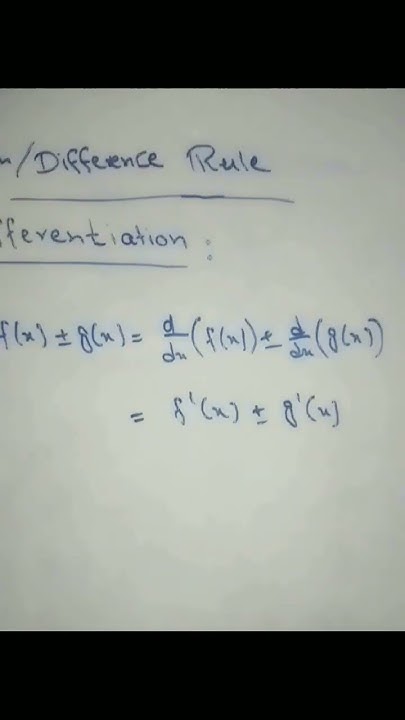 /Difference Rule
fferentiation :
f(x) ± g(x) = d/dx (f(x)) ± d/dx (g(x))
= f'(x) ± g'(x)